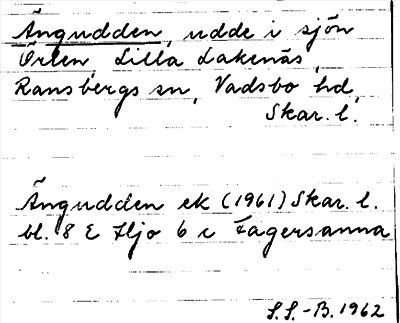 Ängudden, udde i sjön
Örlen, Lilla Lakenäs,
Ransbergs sn, Vadsbo hd,
Skar. l.
Ängudden ek (1961) Skar. l.
bl. 8 E Hjo 6 c Fagersanna
S.S.-B. 1962